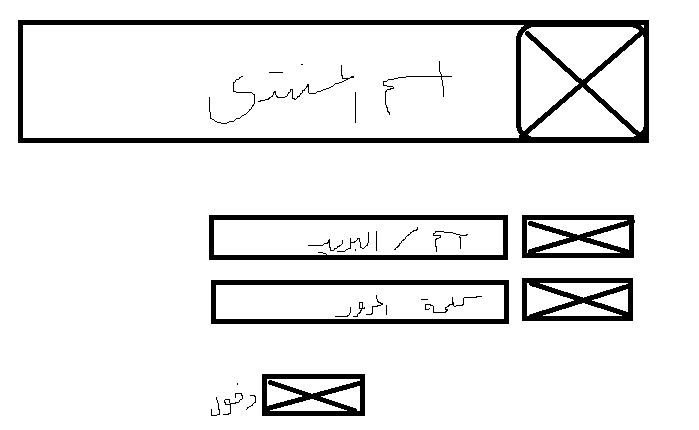 اسم المنتدى
اسم / البريد
كلمة المرور
دخول